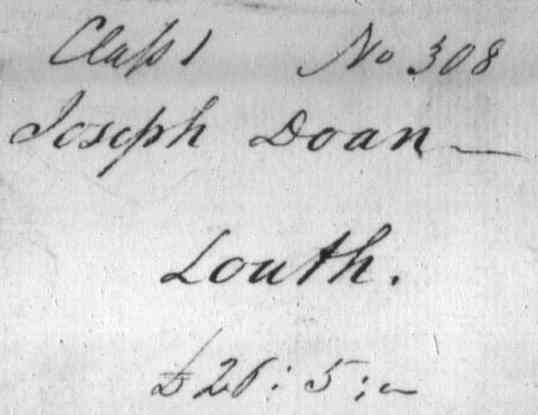 Class 1 No 308
Joseph Doan —
Louth.
£ 26 : 5 : ~